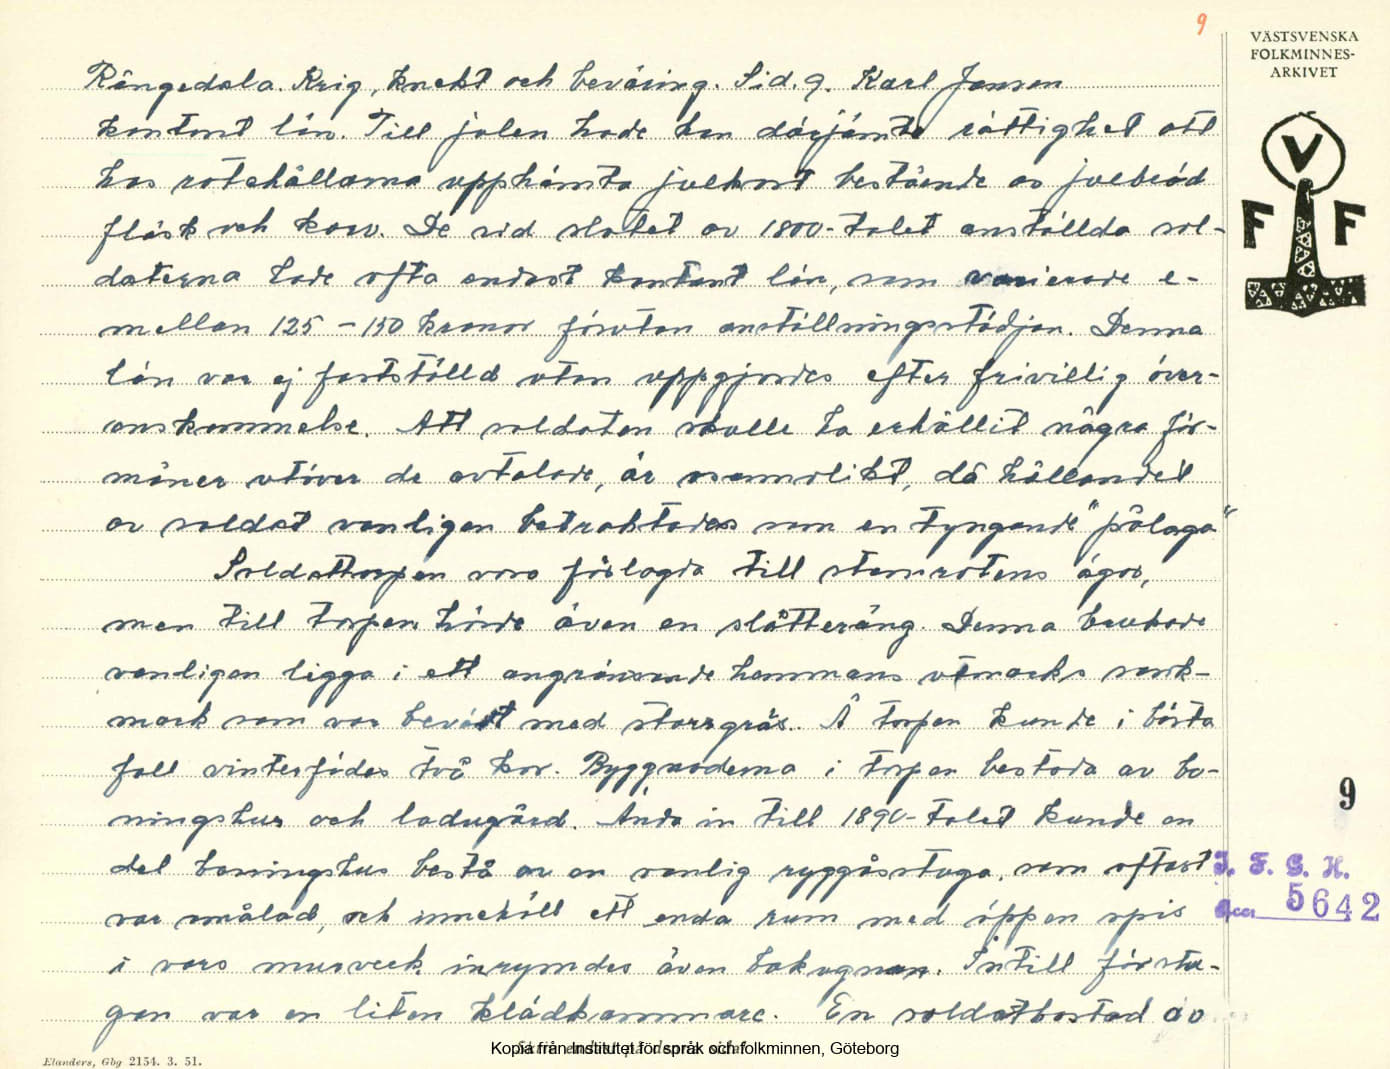 9
VÄSTSVENSKA
FOLKMINNES-
ARKIVET
V
F F
Rångedala. Krig, knekt och beväring. Sid. 9. Karl Jonson
kontant lön. Till julen hade han därjämte rättighet att
hos rotehållarna upphämta julkost bestående av julbröd
fläsk och korv. De vid slutet av 1800-talet anställda sol-
daterna hade ofta endast kontant lön, som varierade e-
mellan 125 - 150 kronor förutom anställningsstädjan. Denna
lön var ej fastställd utan uppgjordes efter frivillig över-
enskommelse. Att soldaten skulle ha erhållit några för-
måner utöver de avtalade, är osannolikt, då hållandet
av soldat vanligen betraktades som en tyngande "pålaga"
Soldattorpen voro förlagda till stamrotens ägor,
men till torpen hörde även en slåtteräng. Denna brukade
vanligen ligga i ett angränsande hemmans utmarks sank-
mark som var beväxt med starrgräs. Å torpen kunde i bästa
fall vinterfödas två kor. Byggnaderna i torpen bestodo av bo-
ningshus och ladugård. Ända in till 1890-talet kunde en
del boningshus bestå av en vanlig ryggåsstuga, som oftast
var omålad, och innehöll ett enda rum med öppen spis
i vars murverk inrymdes även bakugnen. Intill förstu-
gan var en liten klädkammare. En soldatbostad av
9
I. F. G. H.
Acc. 5642
Elanders, Gbg 2154. 3. 51.
Kopia från Institutet för språk och folkminnen, Göteborg